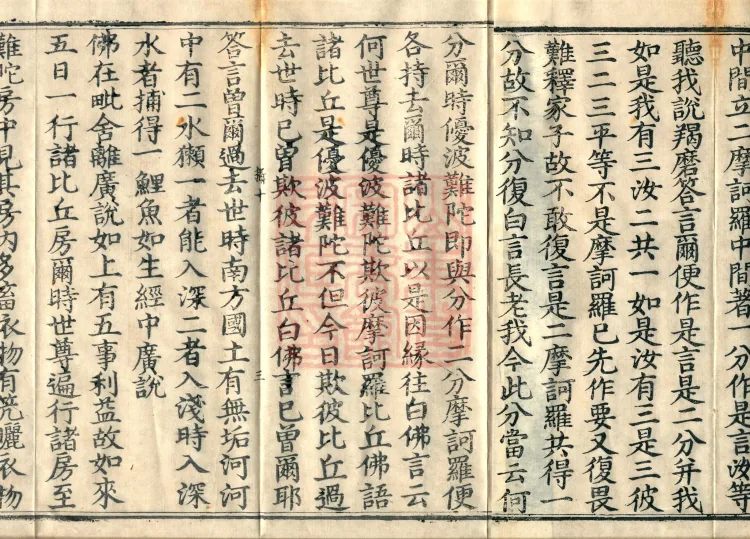 中間立二摩訶羅中間著一分作是言汝等
聽我說羯磨答言爾便作是言是二分并我
如是我有三汝二共一如是汝有三是三彼
三二三平等不是摩訶羅已先作要又復畏
難釋家子故不敢復言是二摩訶羅共得一
分故不知分復白言長老我今此分當云何
分爾時優波難陀即與分作二分摩訶羅便
各持去爾時諸比丘以是因緣往白佛言云
何世尊是優波難陀欺彼摩訶羅比丘佛語
諸比丘是優波難陀不但今日欺彼比丘過
去世時已曾欺彼諸比丘白佛言已曾爾耶
十 三
答言曾爾過去世時南方國土有無垢河河
中有二水獺一者能入深二者入淺時入深
水者捕得一鯉魚如生經中廣說
佛在毗舍離廣說如上有五事利益故如來
五日一行諸比丘房爾時世尊遍行諸房至
難陀房中見其房內多畜衣物有曬衣物